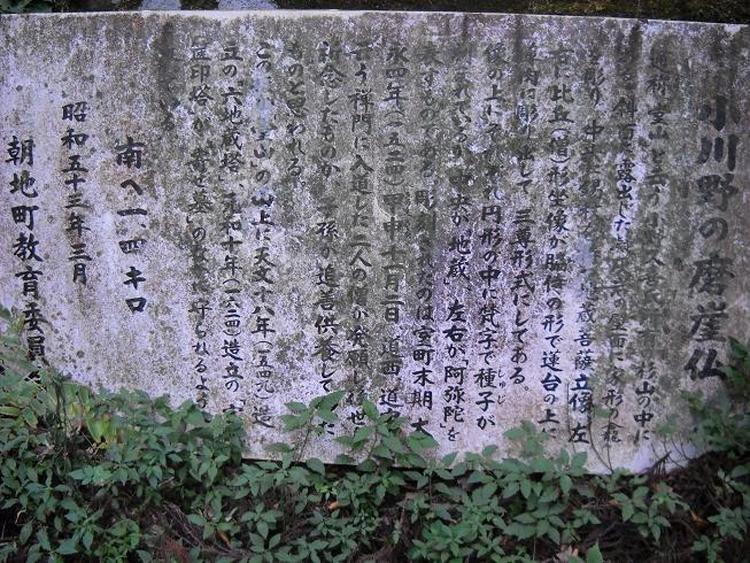 小川野の磨崖仏
通称宝山と云う小 人 杉山の中に
斜面に露出した 壁面に 形の龕
を彫り 中央に 地蔵菩薩立像 左
右に比丘(僧)形坐像が脇侍の形で蓮台の上に
肉に彫り出して 三尊形式にしてある
後の上にそれぞれ円形の中に梵字で種子が
しゅじ
刻まれているが 中央が「地蔵」 左右が「阿弥陀」を
表すものである 彫刻されたのは室町末期 大
永四年(一五二四)甲申十一月二日 道西 道
と云う禅門に入道した二人の僧が発願し後世
祈念したものか 子孫が追善供養してた
ものと思われる
この 山の山上に天文十八年(一五四九)造
立の「六地蔵塔」 元和十年(一六二四)造立の「宝
篋印塔」が 墓 の 守られるよう

南へ一、四キロ
昭和五十三年三月
朝地町教育委員